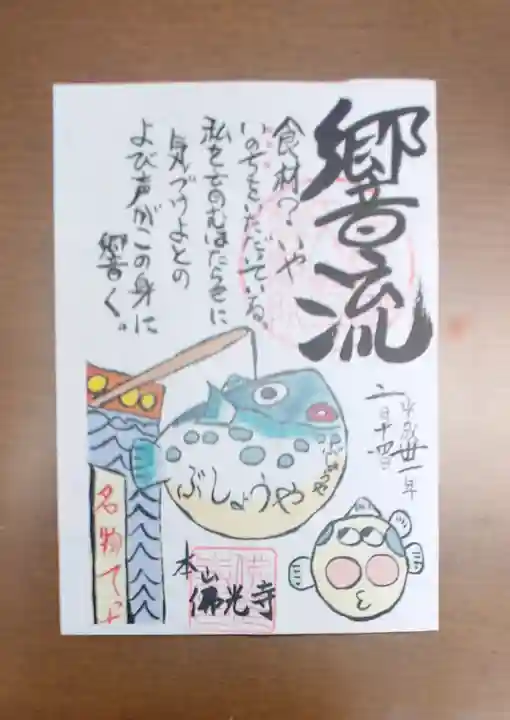 響流
食材?いや
いのちをいただいている。
私を育むはたらきに
気づけよとの
よび声がこの身に
響く。
平成卅一年
二月十四日
ぶしょうや
名物てっ
本山
佛光寺